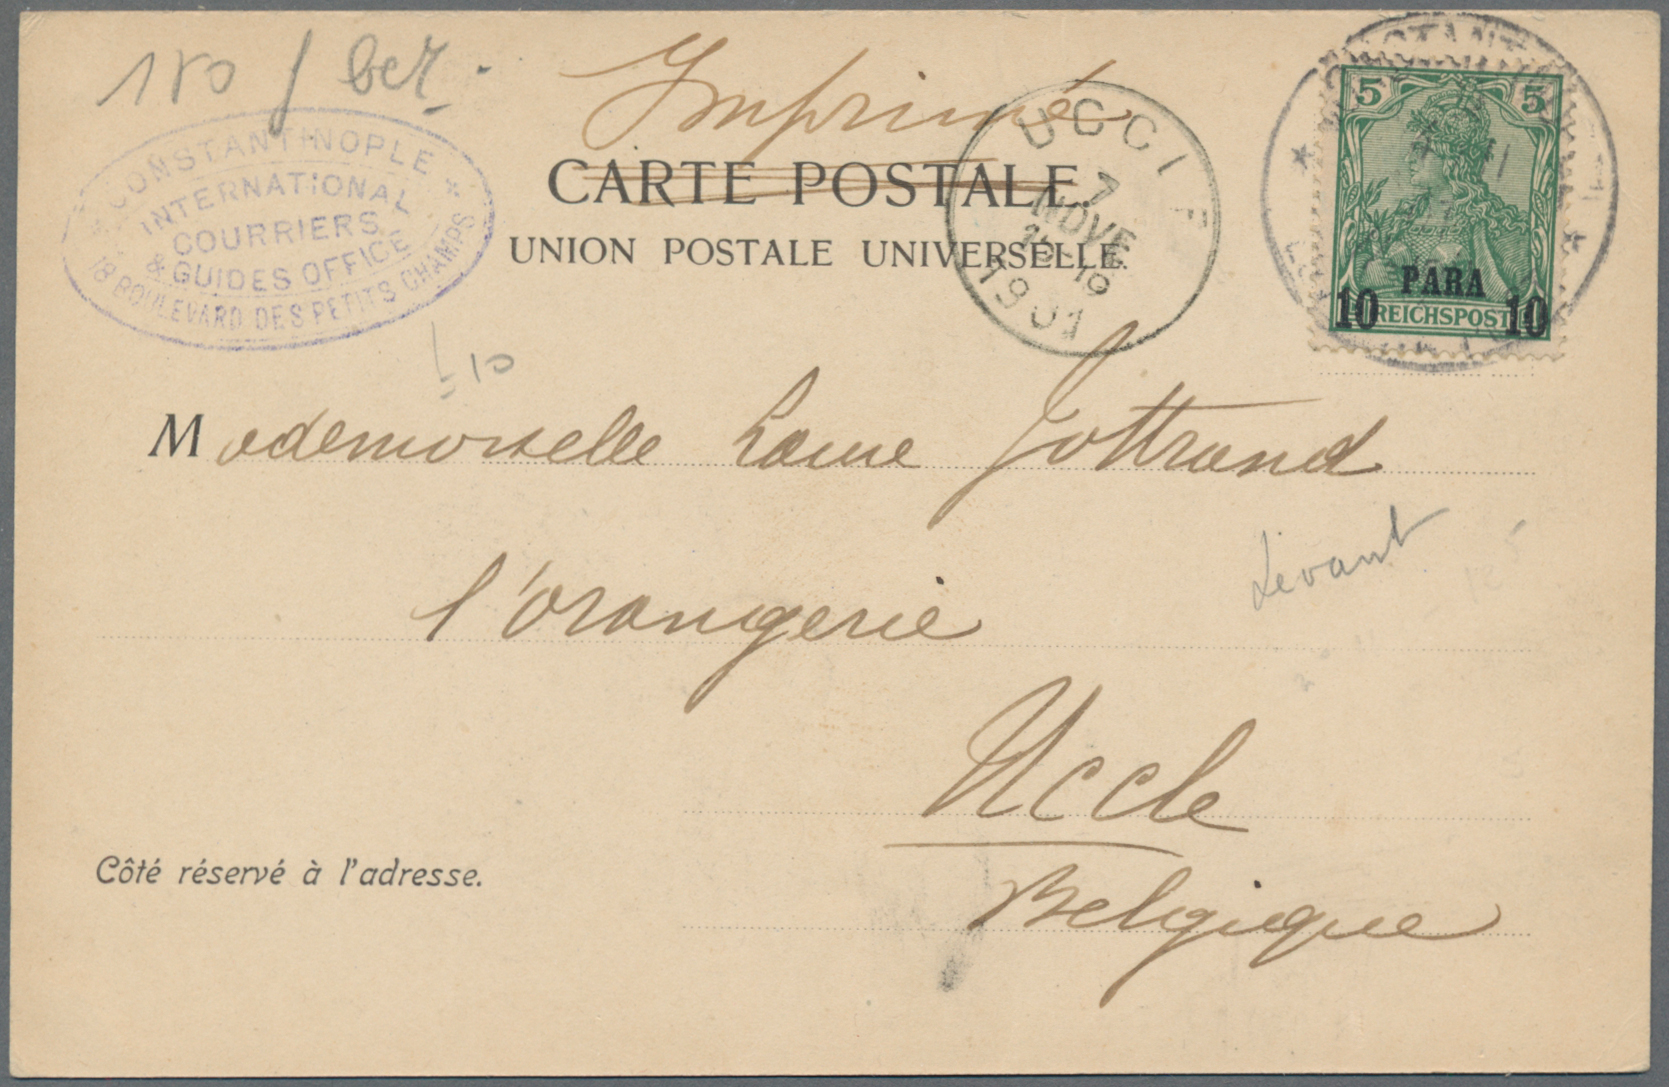 Imprimé
CARTE POSTALE.
UNION POSTALE UNIVERSELLE.
CONSTANTINOPLE
INTERNATIONAL
COURRIERS
& GUIDES OFFICE
18 BOULEVARD DES PETITS CHAMPS
UCCLE
7
NOVE
1901
5 5
PARA
10 10
REICHSPOST
10
Mademoiselle Laure Jottrand
Levant
l'orangerie
Uccle
Belgique
Côté réservé à l'adresse.